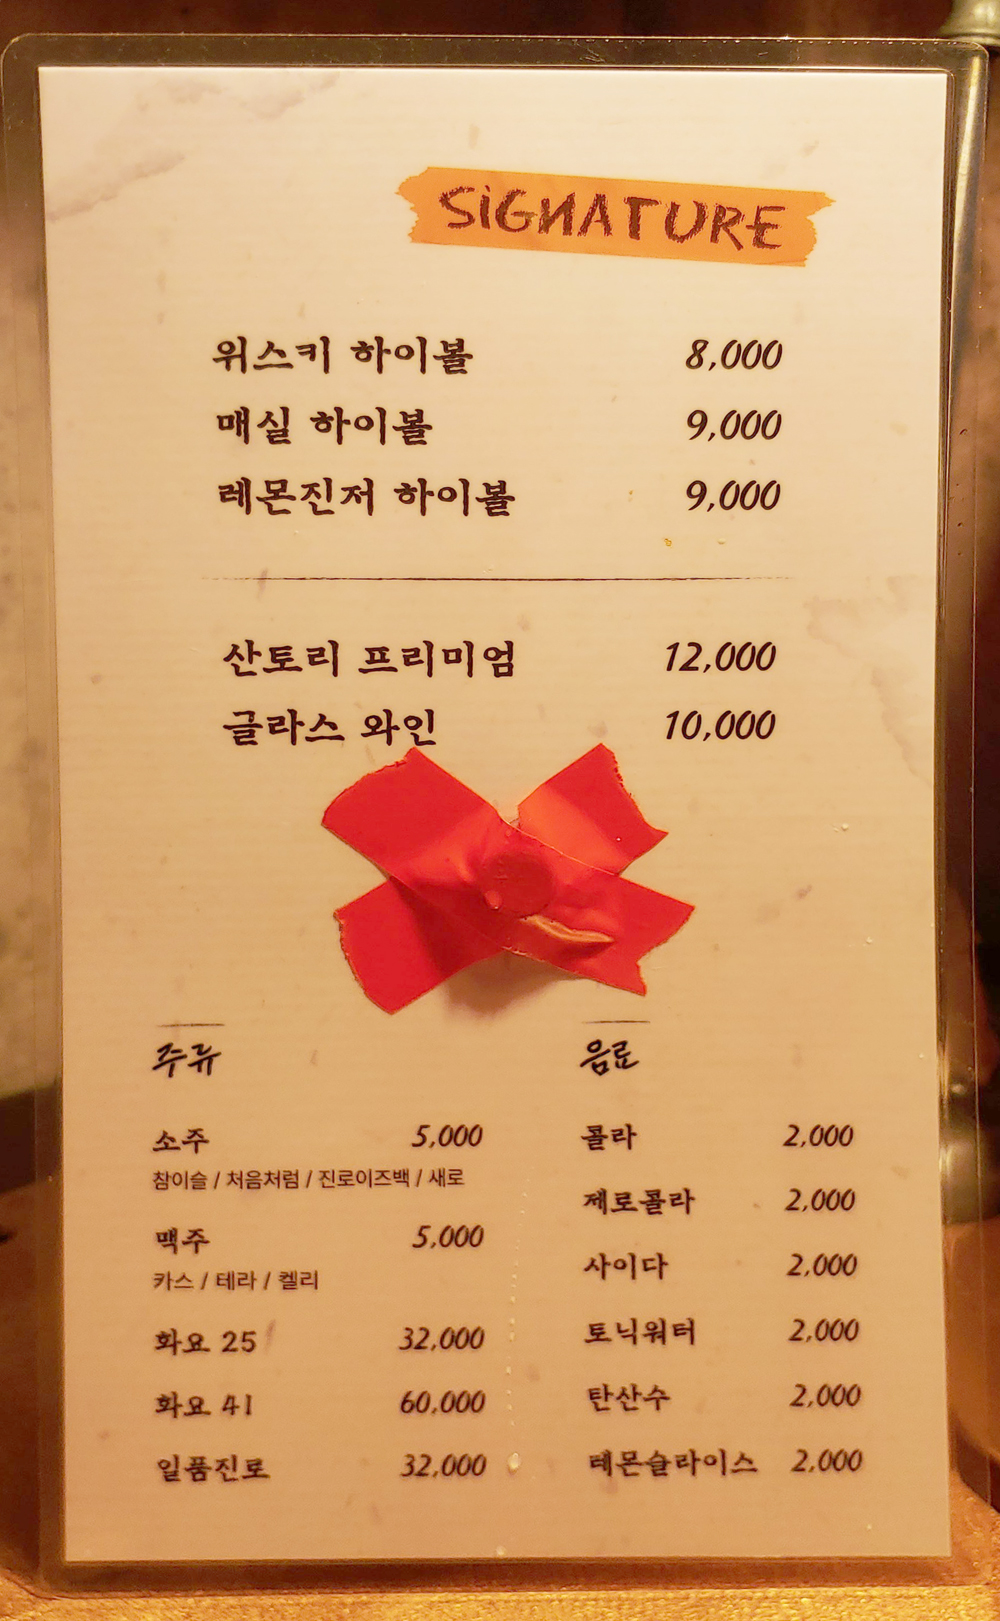 SiGNATURE
위스키 하이볼 8,000
매실 하이볼 9,000
레몬진저 하이볼 9,000
산토리 프리미엄 12,000
글라스 와인 10,000
주류
소주 5,000
참이슬 / 처음처럼 / 진로이즈백 / 새로
맥주 5,000
카스 / 테라 / 켈리
화요 25 32,000
화요 41 60,000
일품진로 32,000
음료
콜라 2,000
제로콜라 2,000
사이다 2,000
토닉워터 2,000
탄산수 2,000
레몬슬라이스 2,000